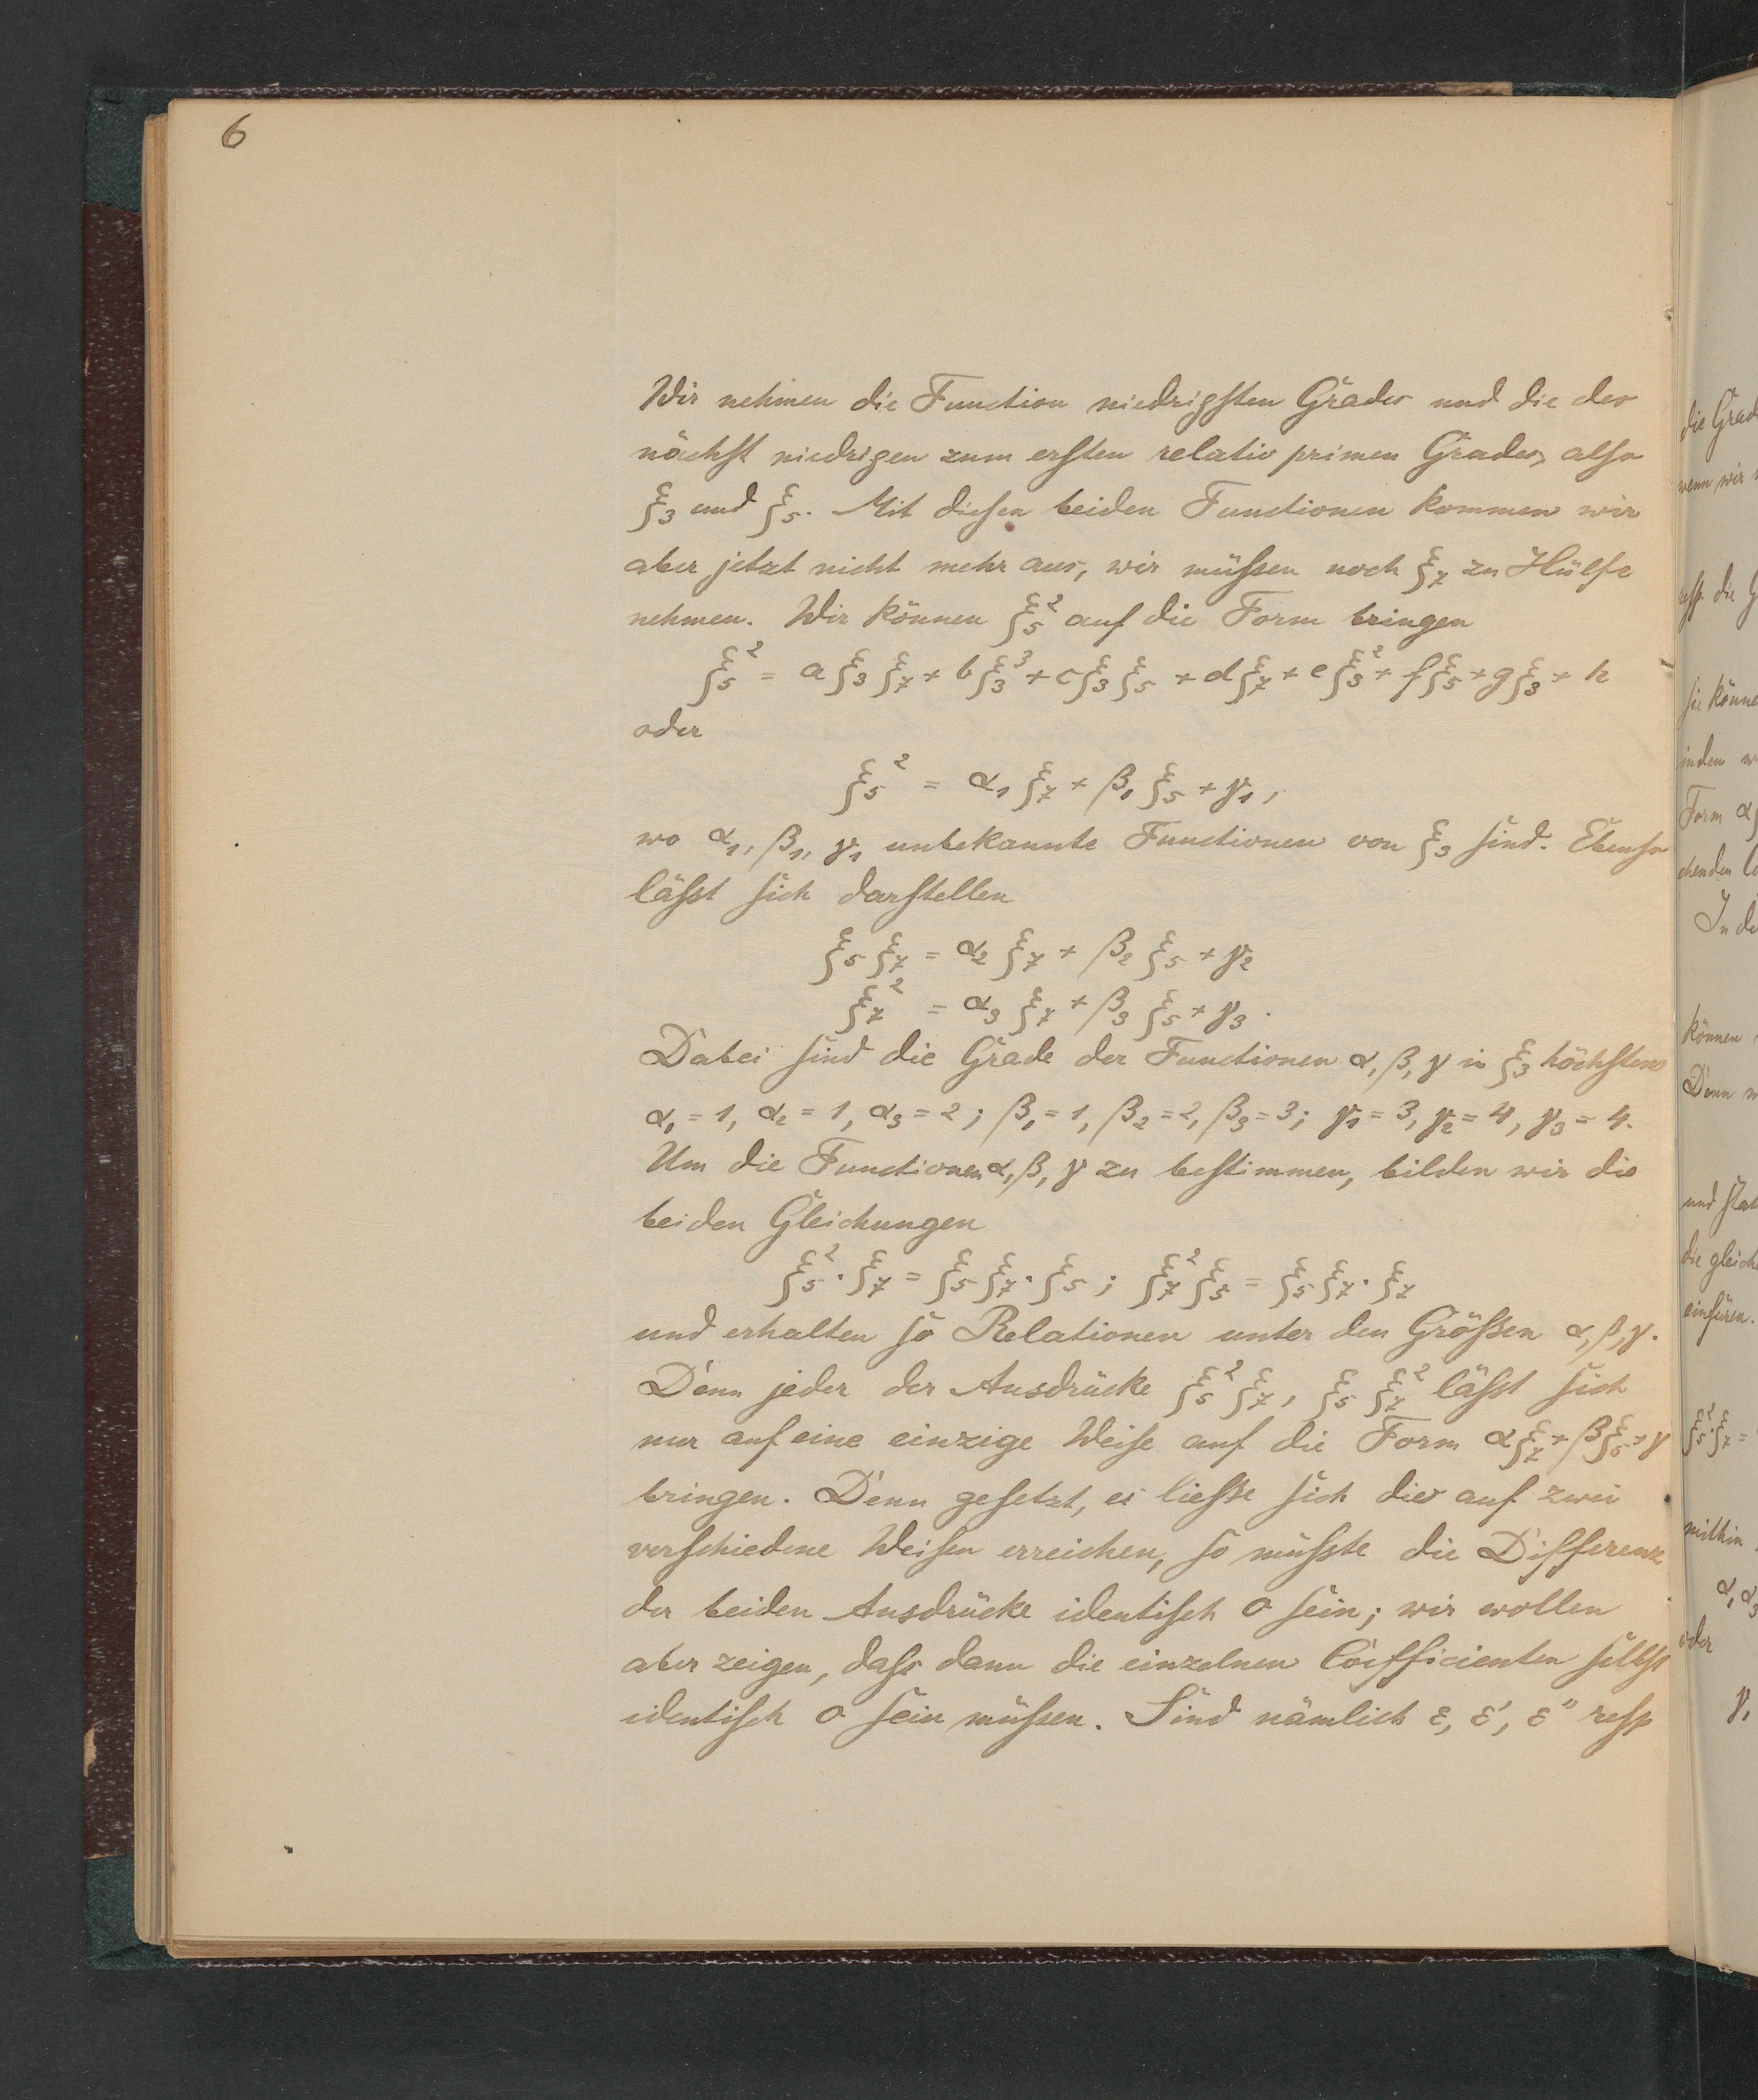 6
Wir nehmen die Function niedrigsten Grades und die des
nächst niedrigen zum ersten relativ primen Grades, also
ξ₃ und ξ₅. Mit diesen beiden Functionen kommen wir
aber jetzt nicht mehr aus, wir müssen noch ξ₇ zu Hülfe
nehmen. Wir können ξ₅² auf die Form bringen
ξ₅² = aξ₃ξ₇ + bξ₃³ + cξ₃ξ₅ + dξ₇ + eξ₃² + fξ₅ + gξ₃ + h
oder
ξ₅² = α₁ξ₇ + β₁ξ₅ + γ₁,
wo α₁, β₁, γ₁ unbekannte Functionen von ξ₃ sind. Ebenso
lässt sich darstellen
ξ₅ξ₇ = α₂ξ₇ + β₂ξ₅ + γ₂
ξ₇² = α₃ξ₇ + β₃ξ₅ + γ₃.
Dabei sind die Grade der Functionen α, β, γ in ξ₃ höchstens
α₁ = 1, α₂ = 1, α₃ = 2; β₁ = 1, β₂ = 2, β₃ = 3; γ₁ = 3, γ₂ = 4, γ₃ = 4.
Um die Functionen α, β, γ zu bestimmen, bilden wir die
beiden Gleichungen
ξ₅²·ξ₇ = ξ₅ξ₇·ξ₅; ξ₇²ξ₅ = ξ₅ξ₇·ξ₇
und erhalten so Relationen unter den Grössen α, β, γ.
Denn jeder der Ausdrücke ξ₅²ξ₇, ξ₅ξ₇² lässt sich
nur auf eine einzige Weise auf die Form αξ₇ + βξ₅ + γ
bringen. Denn gesetzt, es liesse sich dies auf zwei
verschiedene Weisen erreichen, so müsste die Differenz
der beiden Ausdrücke identisch 0 sein; wir wollen
aber zeigen, dass dann die einzelnen Coefficienten selbst
identisch 0 sein müssen. Sind nämlich ε, ε′, ε″ resp
die Grad
wenn wir
resp. die G
sie könne
indem w
Form α
In de
können
Denn w
die gleich
einfüren.
ξ₅²·ξ₇ =
mithin
α₁α₃
oder
γ₁